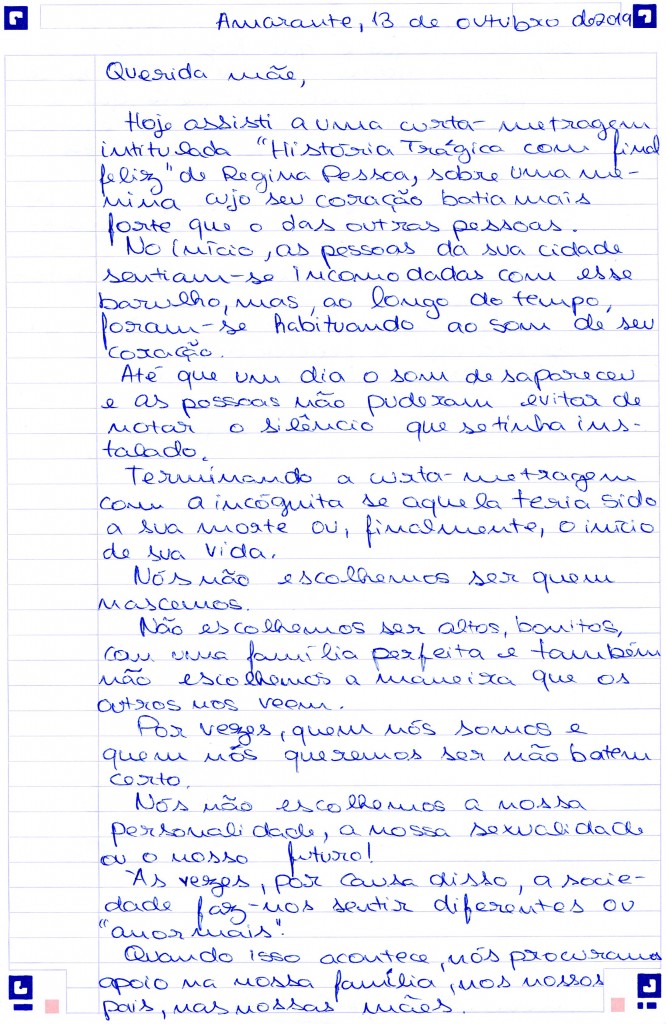 Amarante, 13 de outubro de 2019
Querida mãe,
Hoje assisti a uma curta-metragem
intitulada "História Trágica com final
feliz" de Regina Pessoa, sobre uma me-
nina cujo seu coração batia mais
forte que o das outras pessoas.
No início, as pessoas da sua cidade
sentiam-se incomodadas com esse
barulho, mas, ao longo do tempo,
foram-se habituando ao som de seu
coração.
Até que um dia o som desapareceu
e as pessoas não puderam evitar de
notar o silêncio que se tinha ins-
talado.
Terminando a curta-metragem
com a incógnita se aquela teria sido
a sua morte ou, finalmente, o início
de sua vida.
Nós não escolhemos ser quem
nascemos.
Não escolhemos ser altos, bonitos,
com uma família perfeita e também
não escolhemos a maneira que os
outros nos veem.
Por vezes, quem nós somos e
quem nós queremos ser não batem
certo.
Nós não escolhemos a nossa
personalidade, a nossa sexualidade
ou o nosso futuro!
Às vezes, por causa disso, a socie-
dade faz-nos sentir diferentes ou
"anormais".
Quando isso acontece, nós procuramos
apoio na nossa família, nos nossos
pais, nas nossas mães.